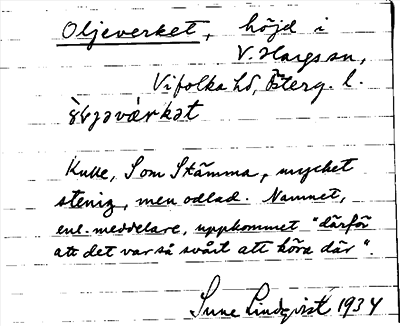 Oljeverket, höjd i
V. Hargs sn,
Vifolka hd, Österg. l.
Kulle, Som Stämma, mycket
stenig, men odlad. Namnet,
enl. meddelare, uppkommet "därför
att det var så svårt att köra där".
Sune Lindqvist 1934